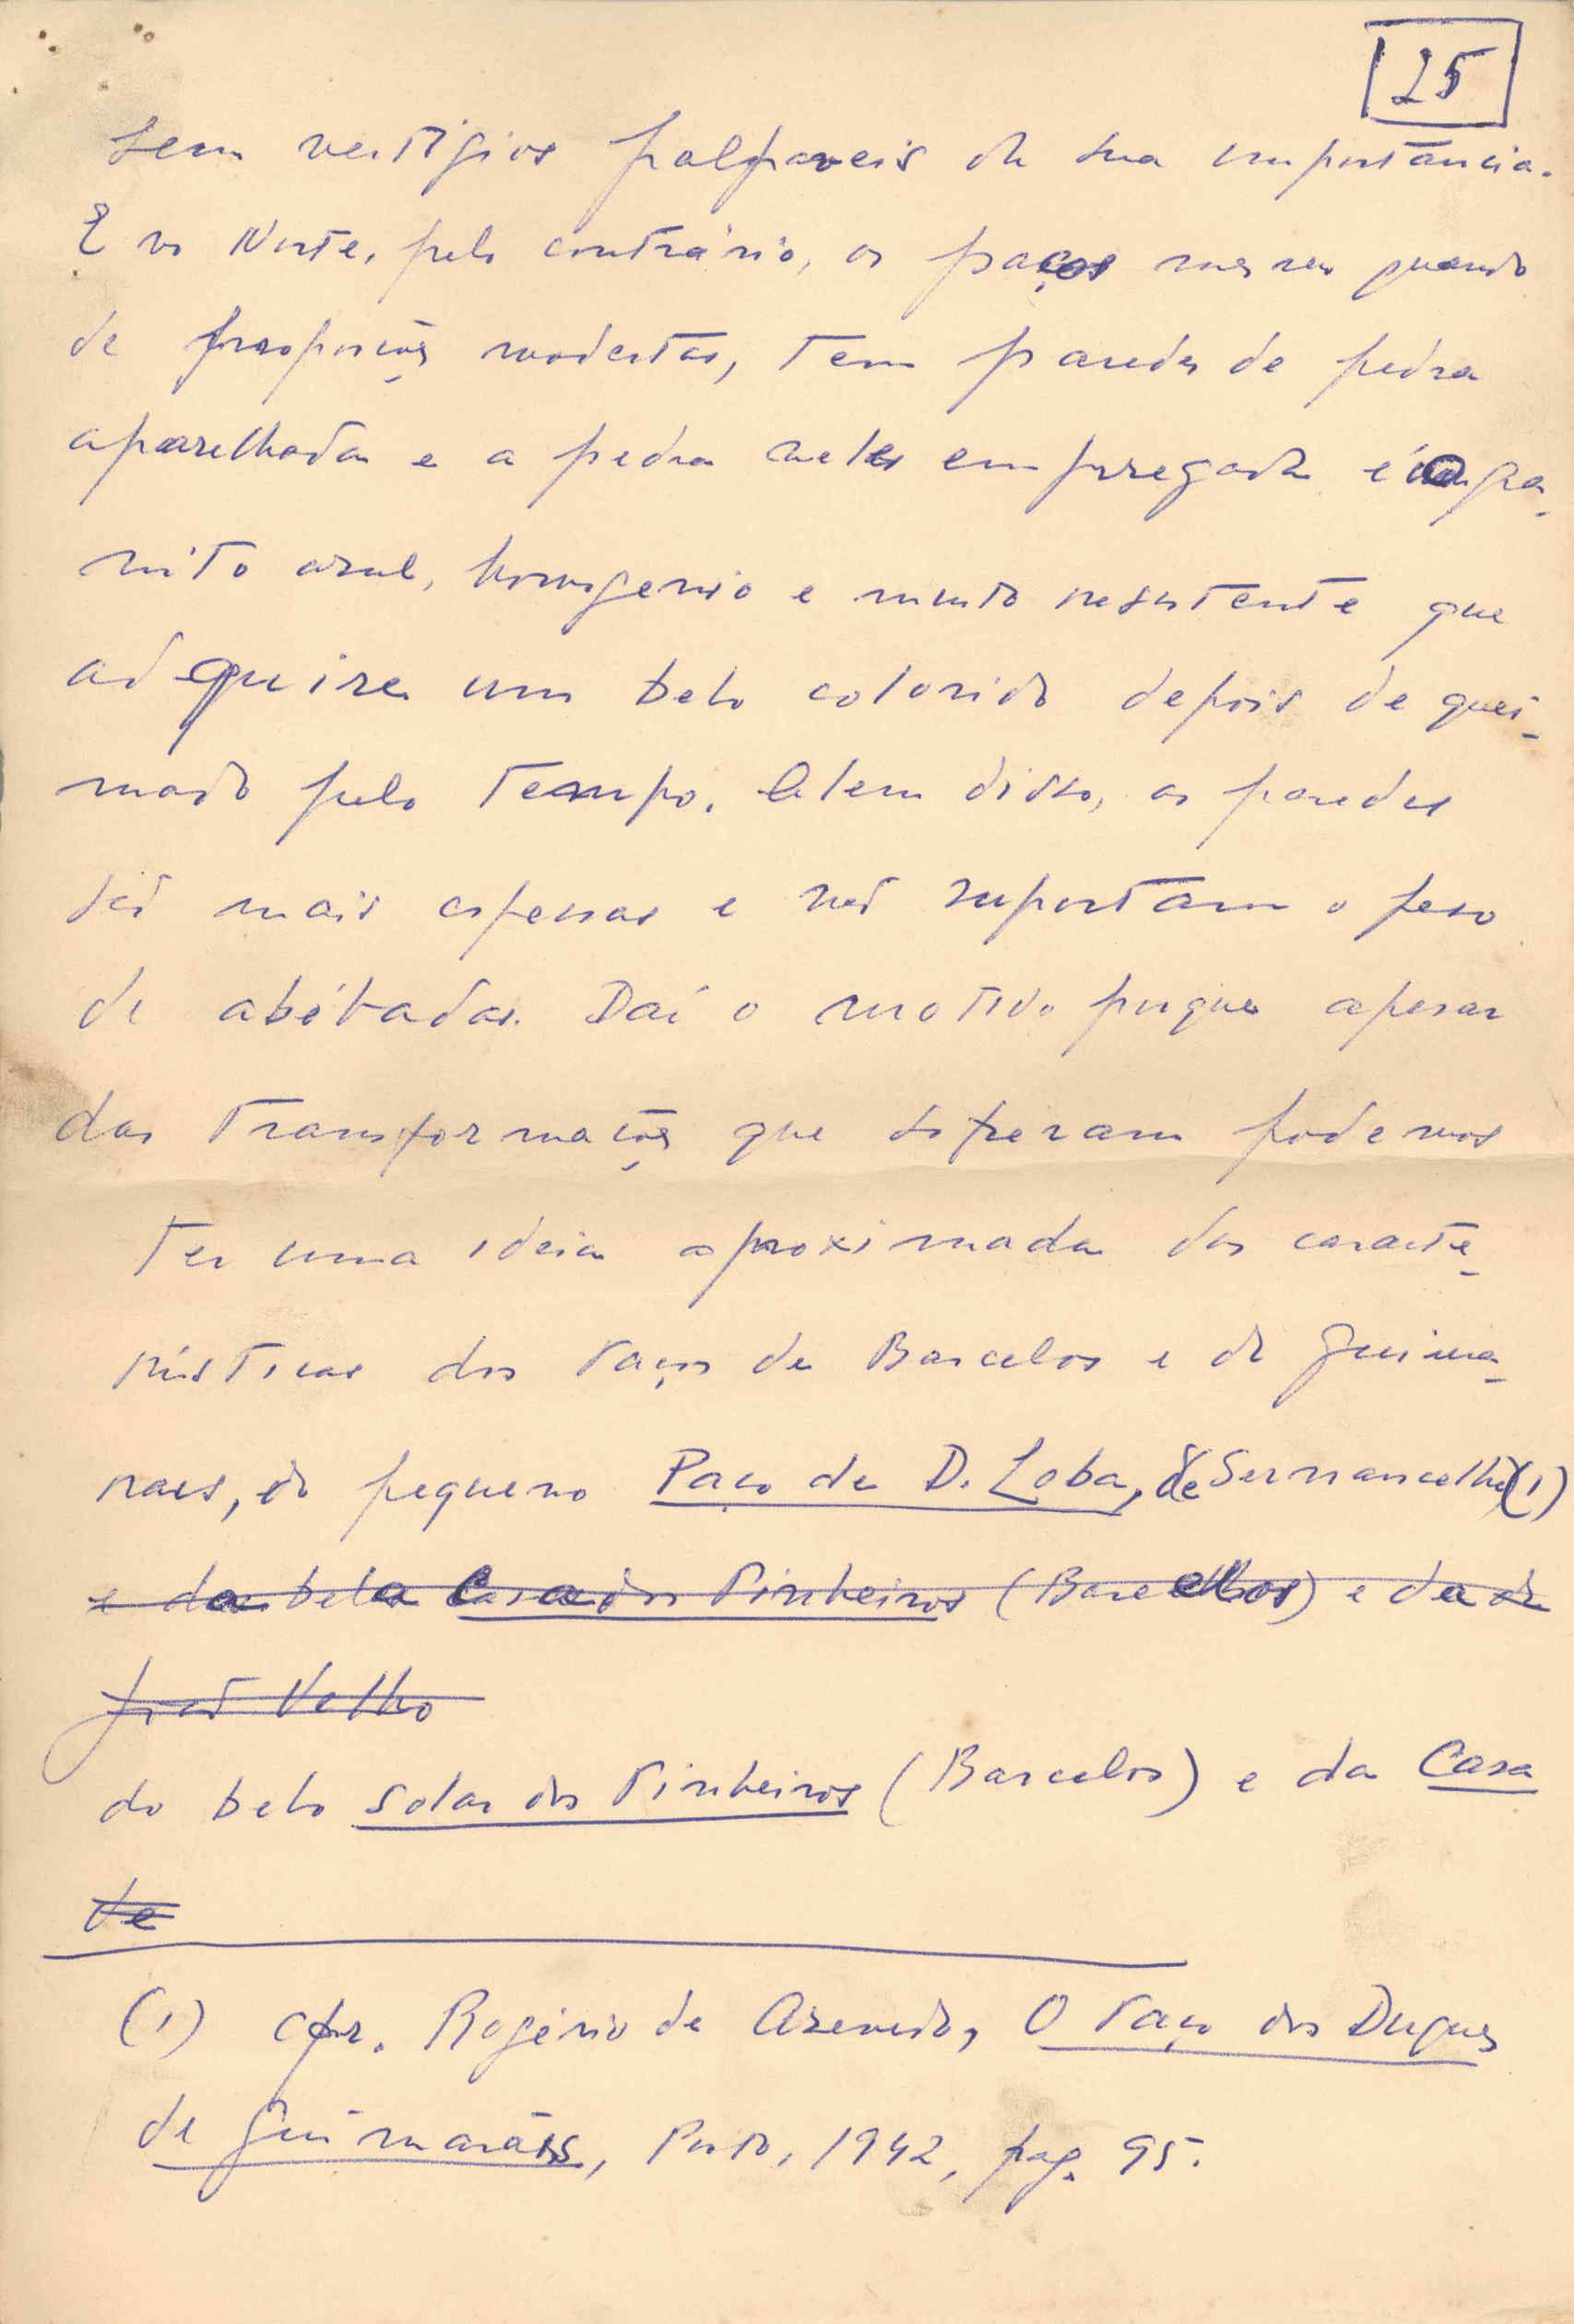 25
sem vestígios palpaveis da sua importância.
E no Norte, pelo contrário, os paços mesmo quando
de proporções modestas, tem paredes de pedra
aparelhada e a pedra neles empregada é o gra-
nito azul, homogenio e muito resistente que
adquire um belo colorido depois de quei-
mado pelo tempo. Alem disso, as paredes
são mais espessas e não suportam o peso
de abóbadas. Daí o motivo porque apesar
das transformações que sofreram podemos
ter uma ideia aproximada das caracte-
rísticas dos Paços de Barcelos e de Guima-
raes, do pequeno Paço de D. Loba, de Sernancelhe (1)
e da bela Casa dos Pinheiros (Barcellos) e da de
do belo solar dos Pinheiros (Barcelos) e da Casa
(1) Cfr. Rogério de Azevedo, O Paço dos Duques
de Guimarães, Porto, 1942, pag. 95.